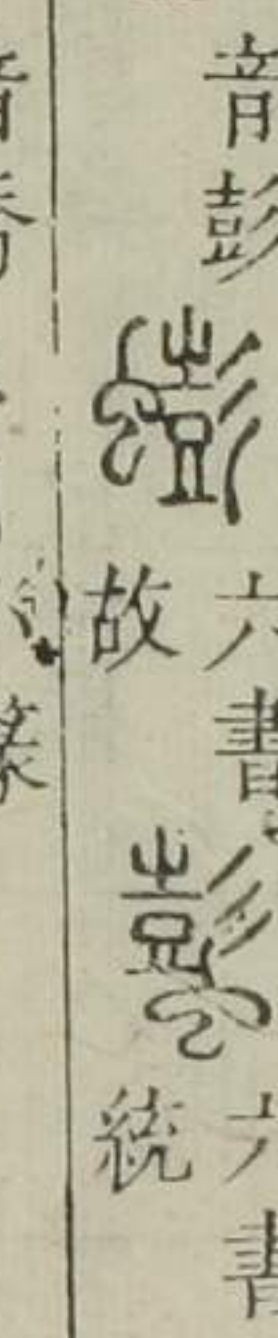 音彭蟛六書故蟚六書統